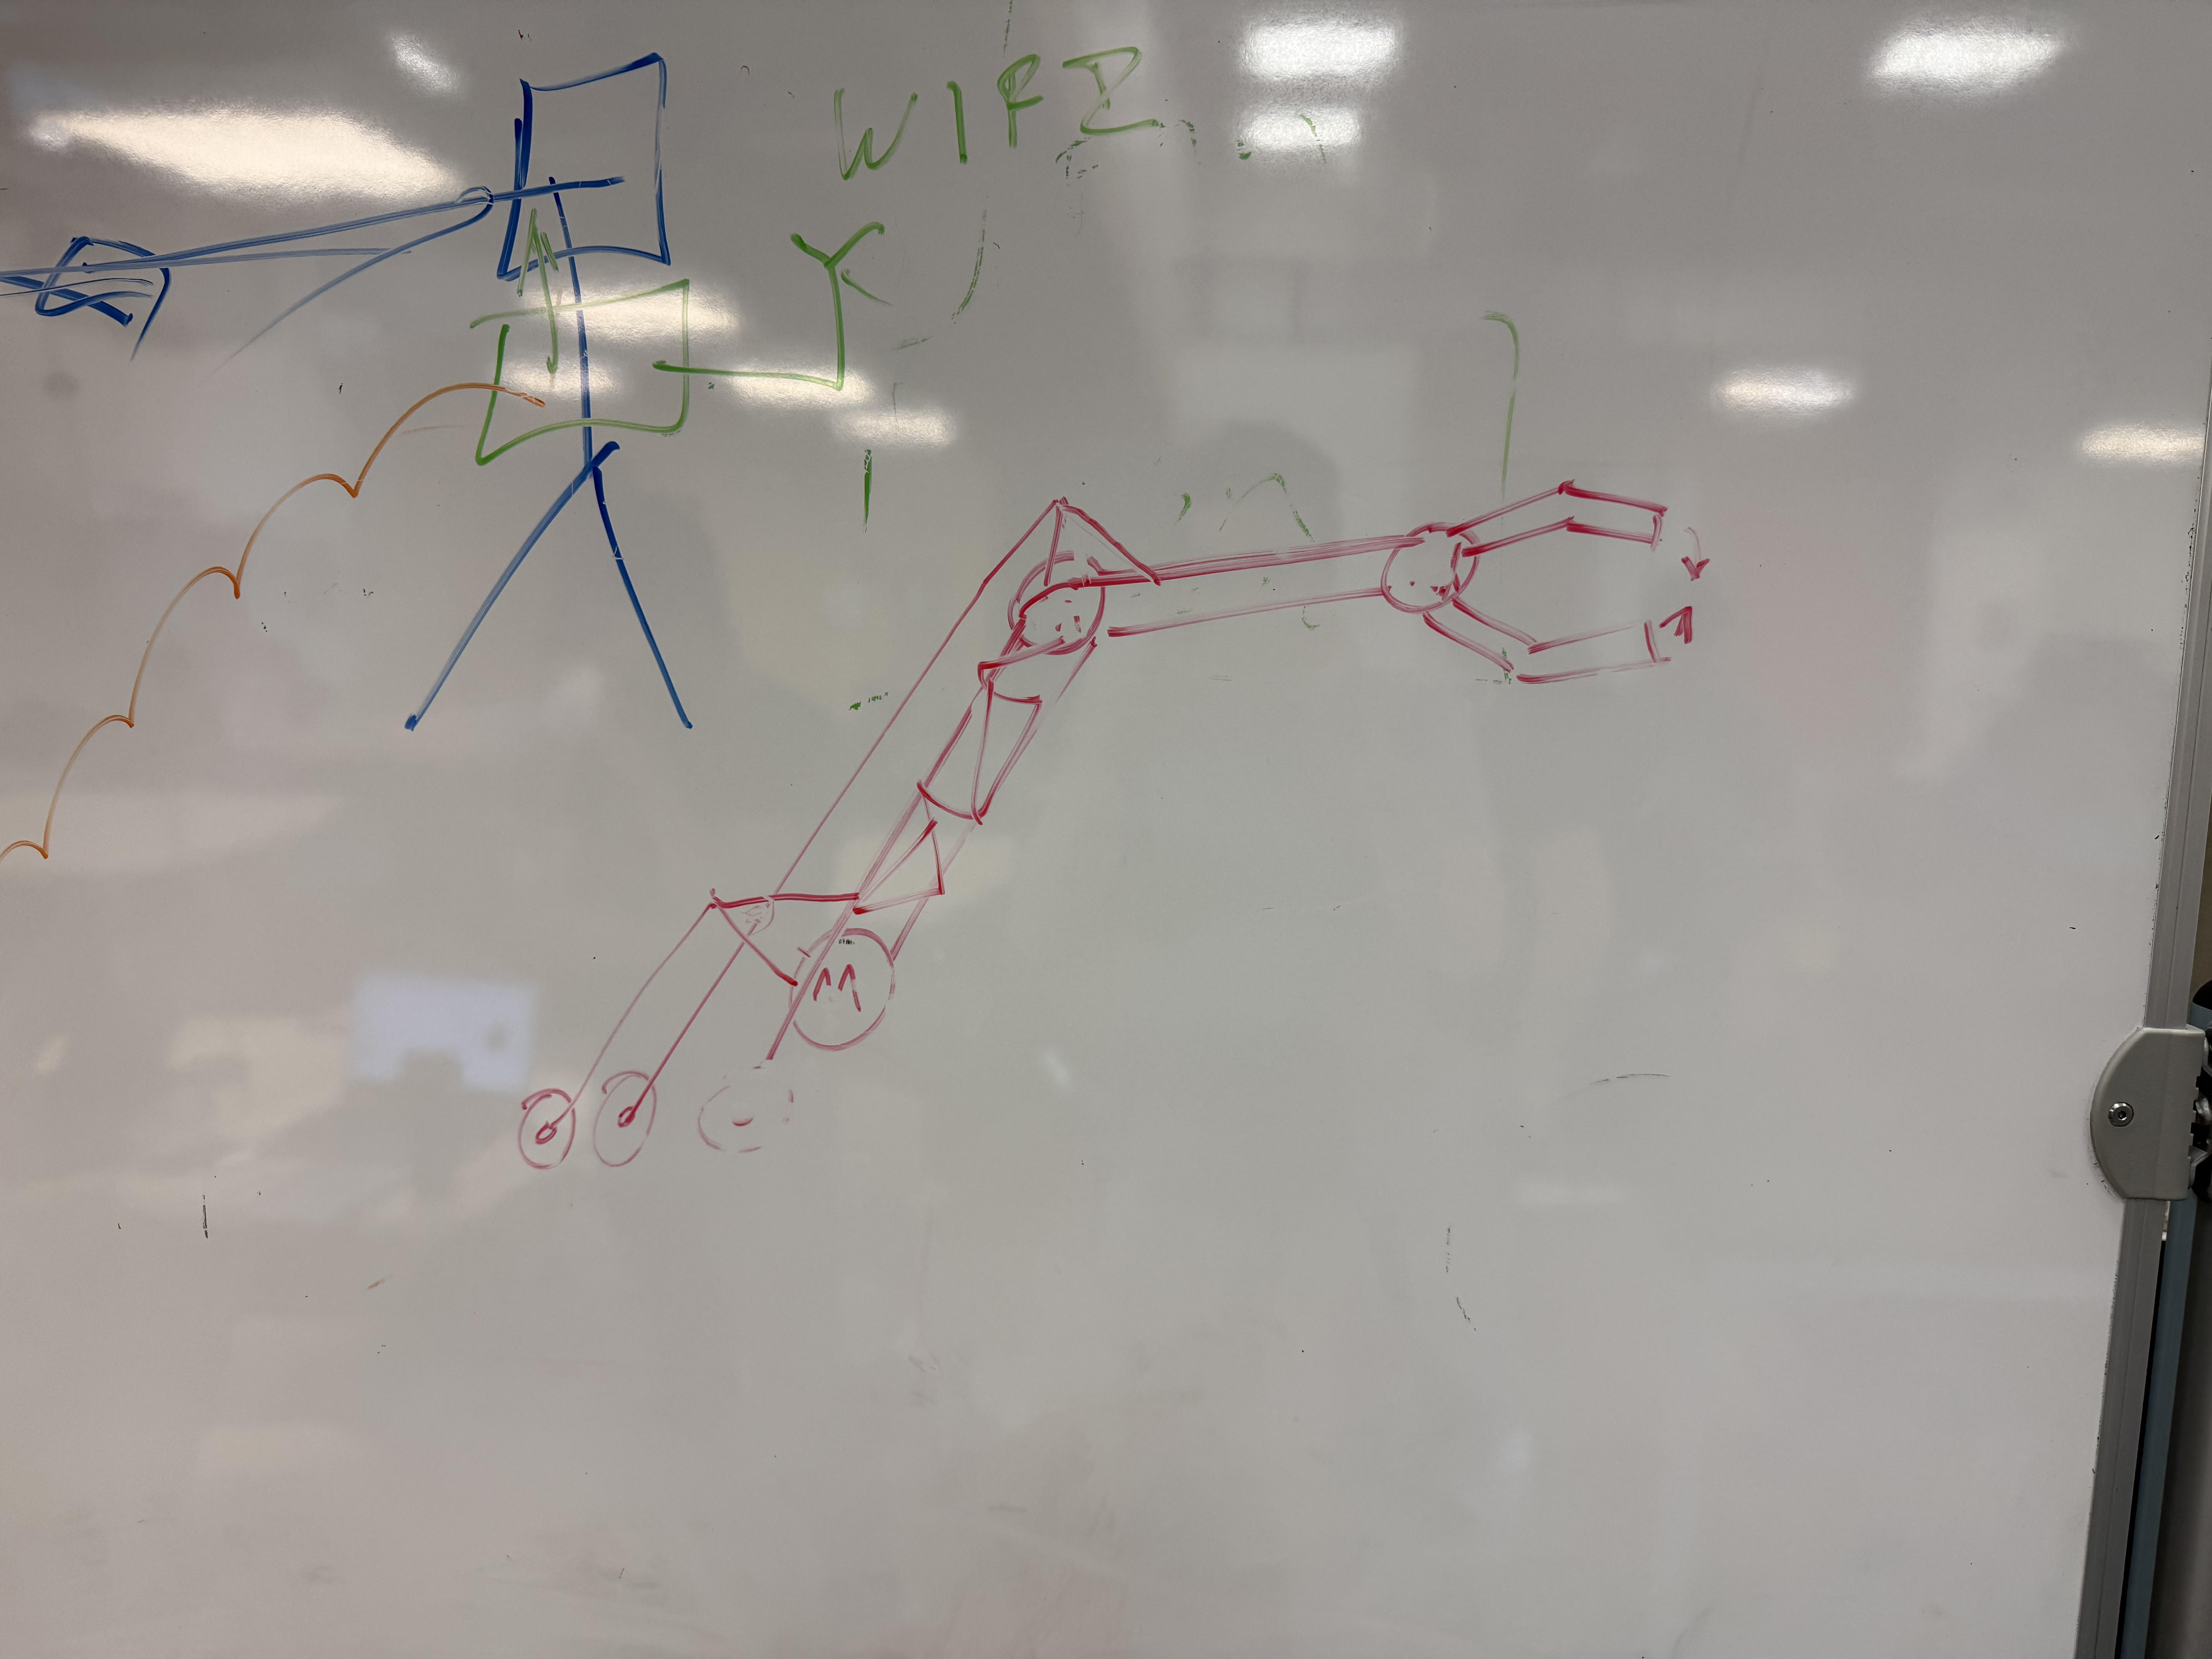 WIFI
M